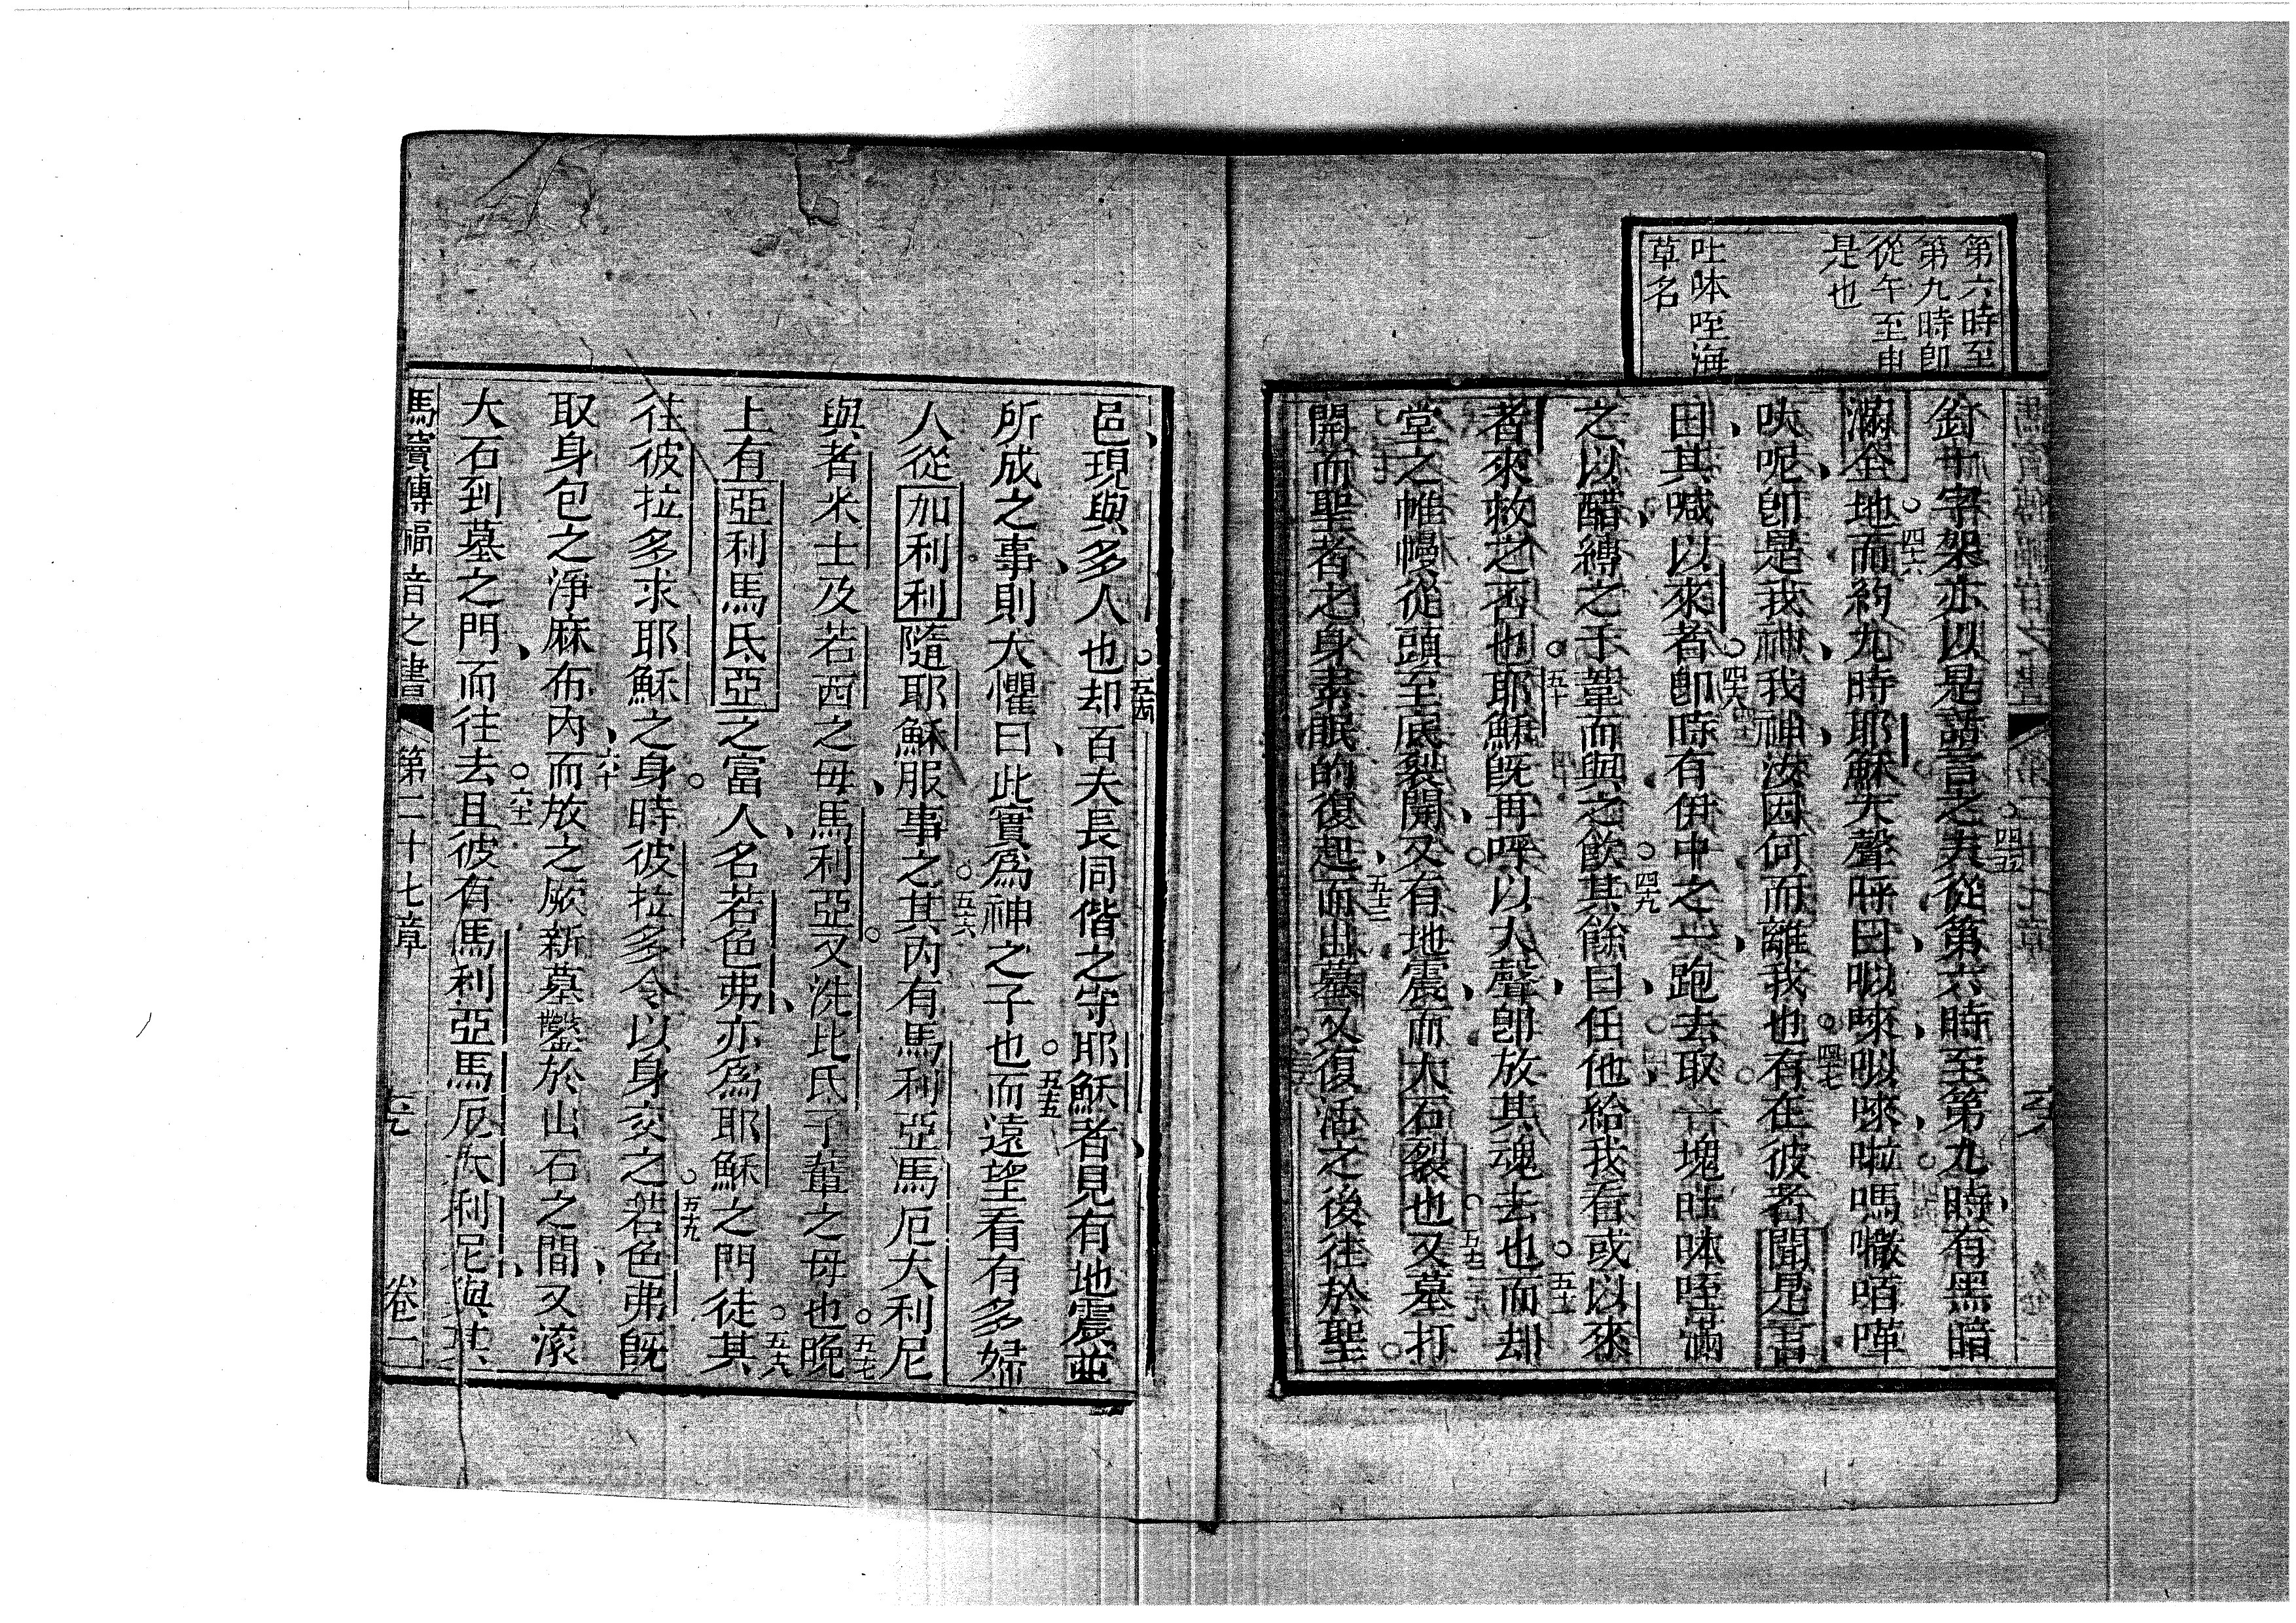 第六時至
第九時卽
從午至申
是也
吐咮咥海
草名
釘十字架亦以是語言之夫從第六時至第九時有黑暗
四五
滿全地而約九時耶穌大聲呼曰𠵽唻𠵽唻啦嗎㘔唒嘩
四六
呋呢卽是我神我神汝因何而離我也有在彼者聞是言
四七
曰其喊以來者卽時有伊中之一跑去取一塊吐咮咥滿
四八
之以醋縛之于葦而與之飲其餘曰任他給我看或以來
四九
者來救之否也耶穌旣再呼以大聲卽放其魂去也而却
五十
五十一
堂之帷幔從頭至底裂開又有地震而大石裂也又墓打
五十二
開而聖者之身素眠的復起而出墓又復活之後往於聖
五十三
邑現與多人也却百夫長同偕之守耶穌者見有地震並
五四
所成之事則大懼曰此實爲神之子也而遠望看有多婦
五五
人從加利利隨耶穌服事之其內有馬利亞馬厄大利尼
五六
與者米士及若西之母馬利亞又洗比氏子輩之母也晚
五七
上有亞利馬氏亞之富人名若色弗亦爲耶穌之門徒其
五八
往彼拉多求耶穌之身時彼拉多令以身交之若色弗旣
五十九
取身包之淨麻布內而放之厥新墓鑿於山石之間又滾
六十
大石到墓之門而往去且彼有馬利亞馬厄大利尼與其
六十一
馬竇傳福音之書 第二十七章 卷一